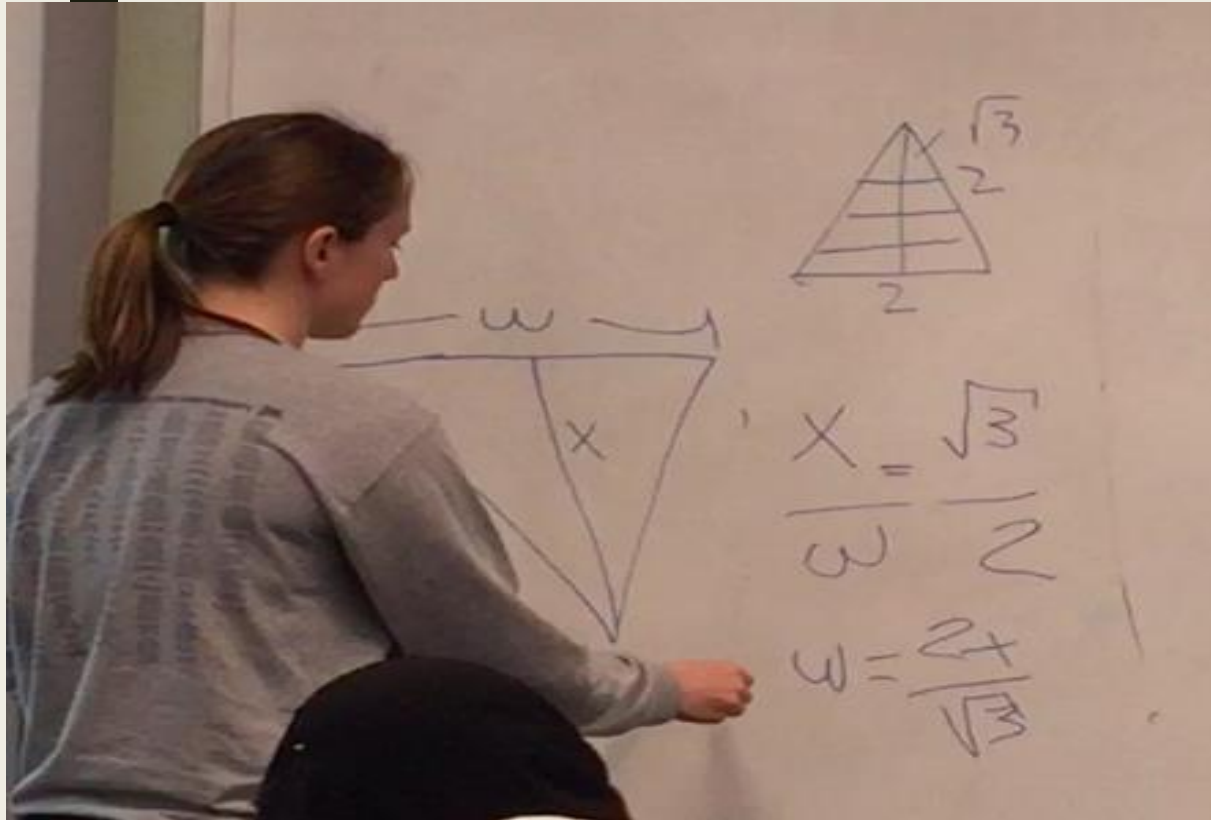 √3
2
2
w
x
x/w = √3/2
w = 2x/√3